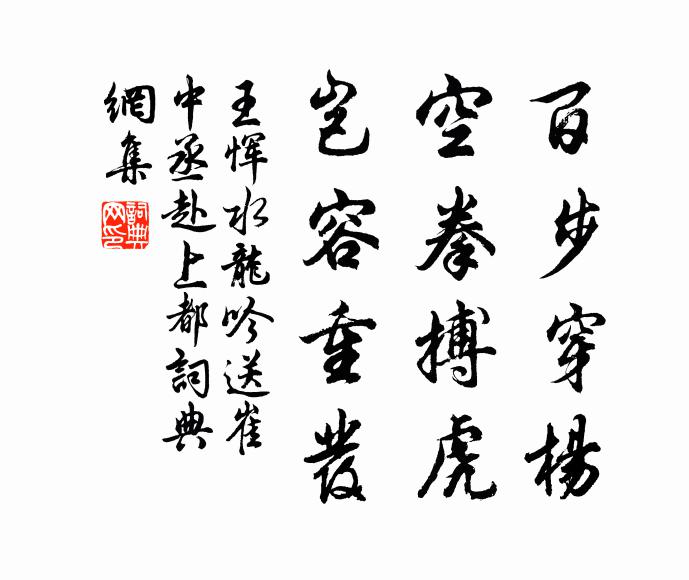 百步穿楊
空拳搏虎
豈容重發
王惲水龍吟送崔
中丞赴上都詞典
網集
詞典網印